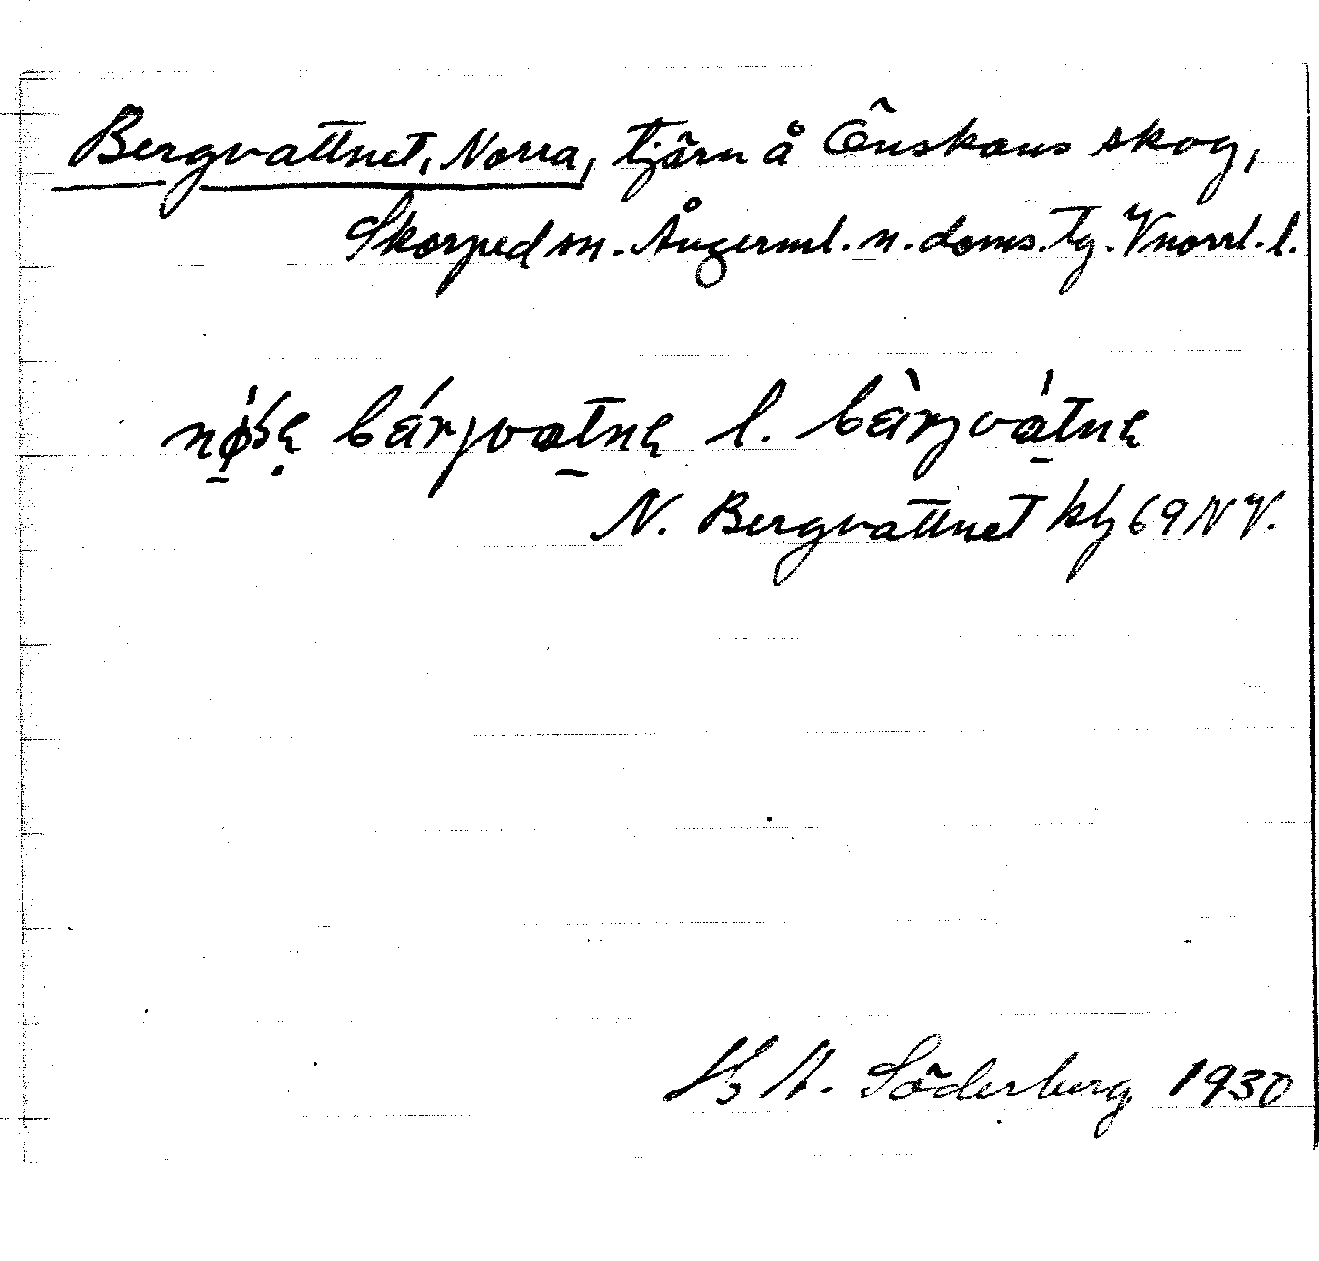 Bergvattnet, Norra, tjärn å Önskans skog,
Skorped sn. Ångerml. n. doms. tg. Vnorrl. l.
bárjvatnę l. bàrjvátnę
N. Bergvattnet kbl 69 NV.
H A. Söderberg 1930